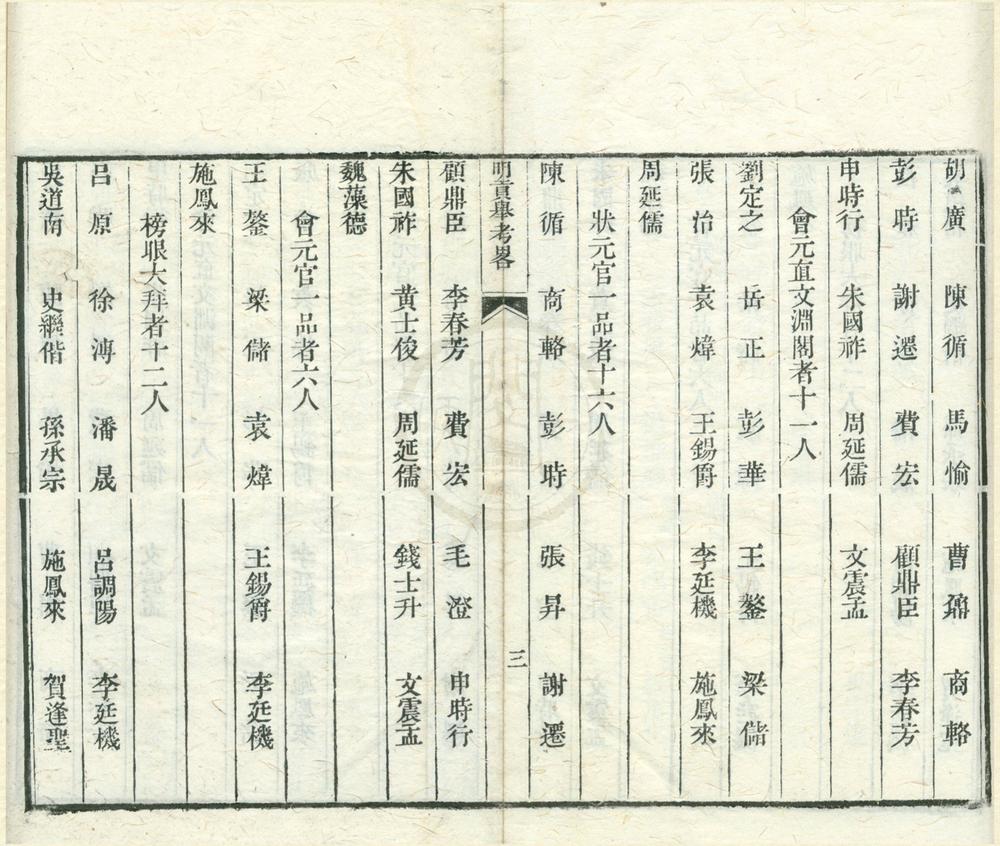 胡廣　陳循　馬愉　曹鼐　商輅
彭時　謝遷　費宏　顧鼎臣　李春芳
申時行　朱國祚　周延儒　文震孟
會元直文淵閣者十一人
劉定之　岳正　彭華　王鏊　梁儲
張治　袁煒　王錫爵　李廷機　施鳳來
周延儒
狀元官一品者十六人
陳循　商輅　彭時　張昇　謝遷
明貢舉考畧　三
顧鼎臣　李春芳　費宏　毛澄　申時行
朱國祚　黄士俊　周延儒　錢士升　文震孟
魏藻德
會元官一品者六人
王鏊　梁儲　袁煒　王錫爵　李廷機
施鳳來
榜眼大拜者十二人
呂原　徐溥　潘晟　呂調陽　李廷機
吳道南　史繼偕　孫承宗　施鳳來　賀逢聖